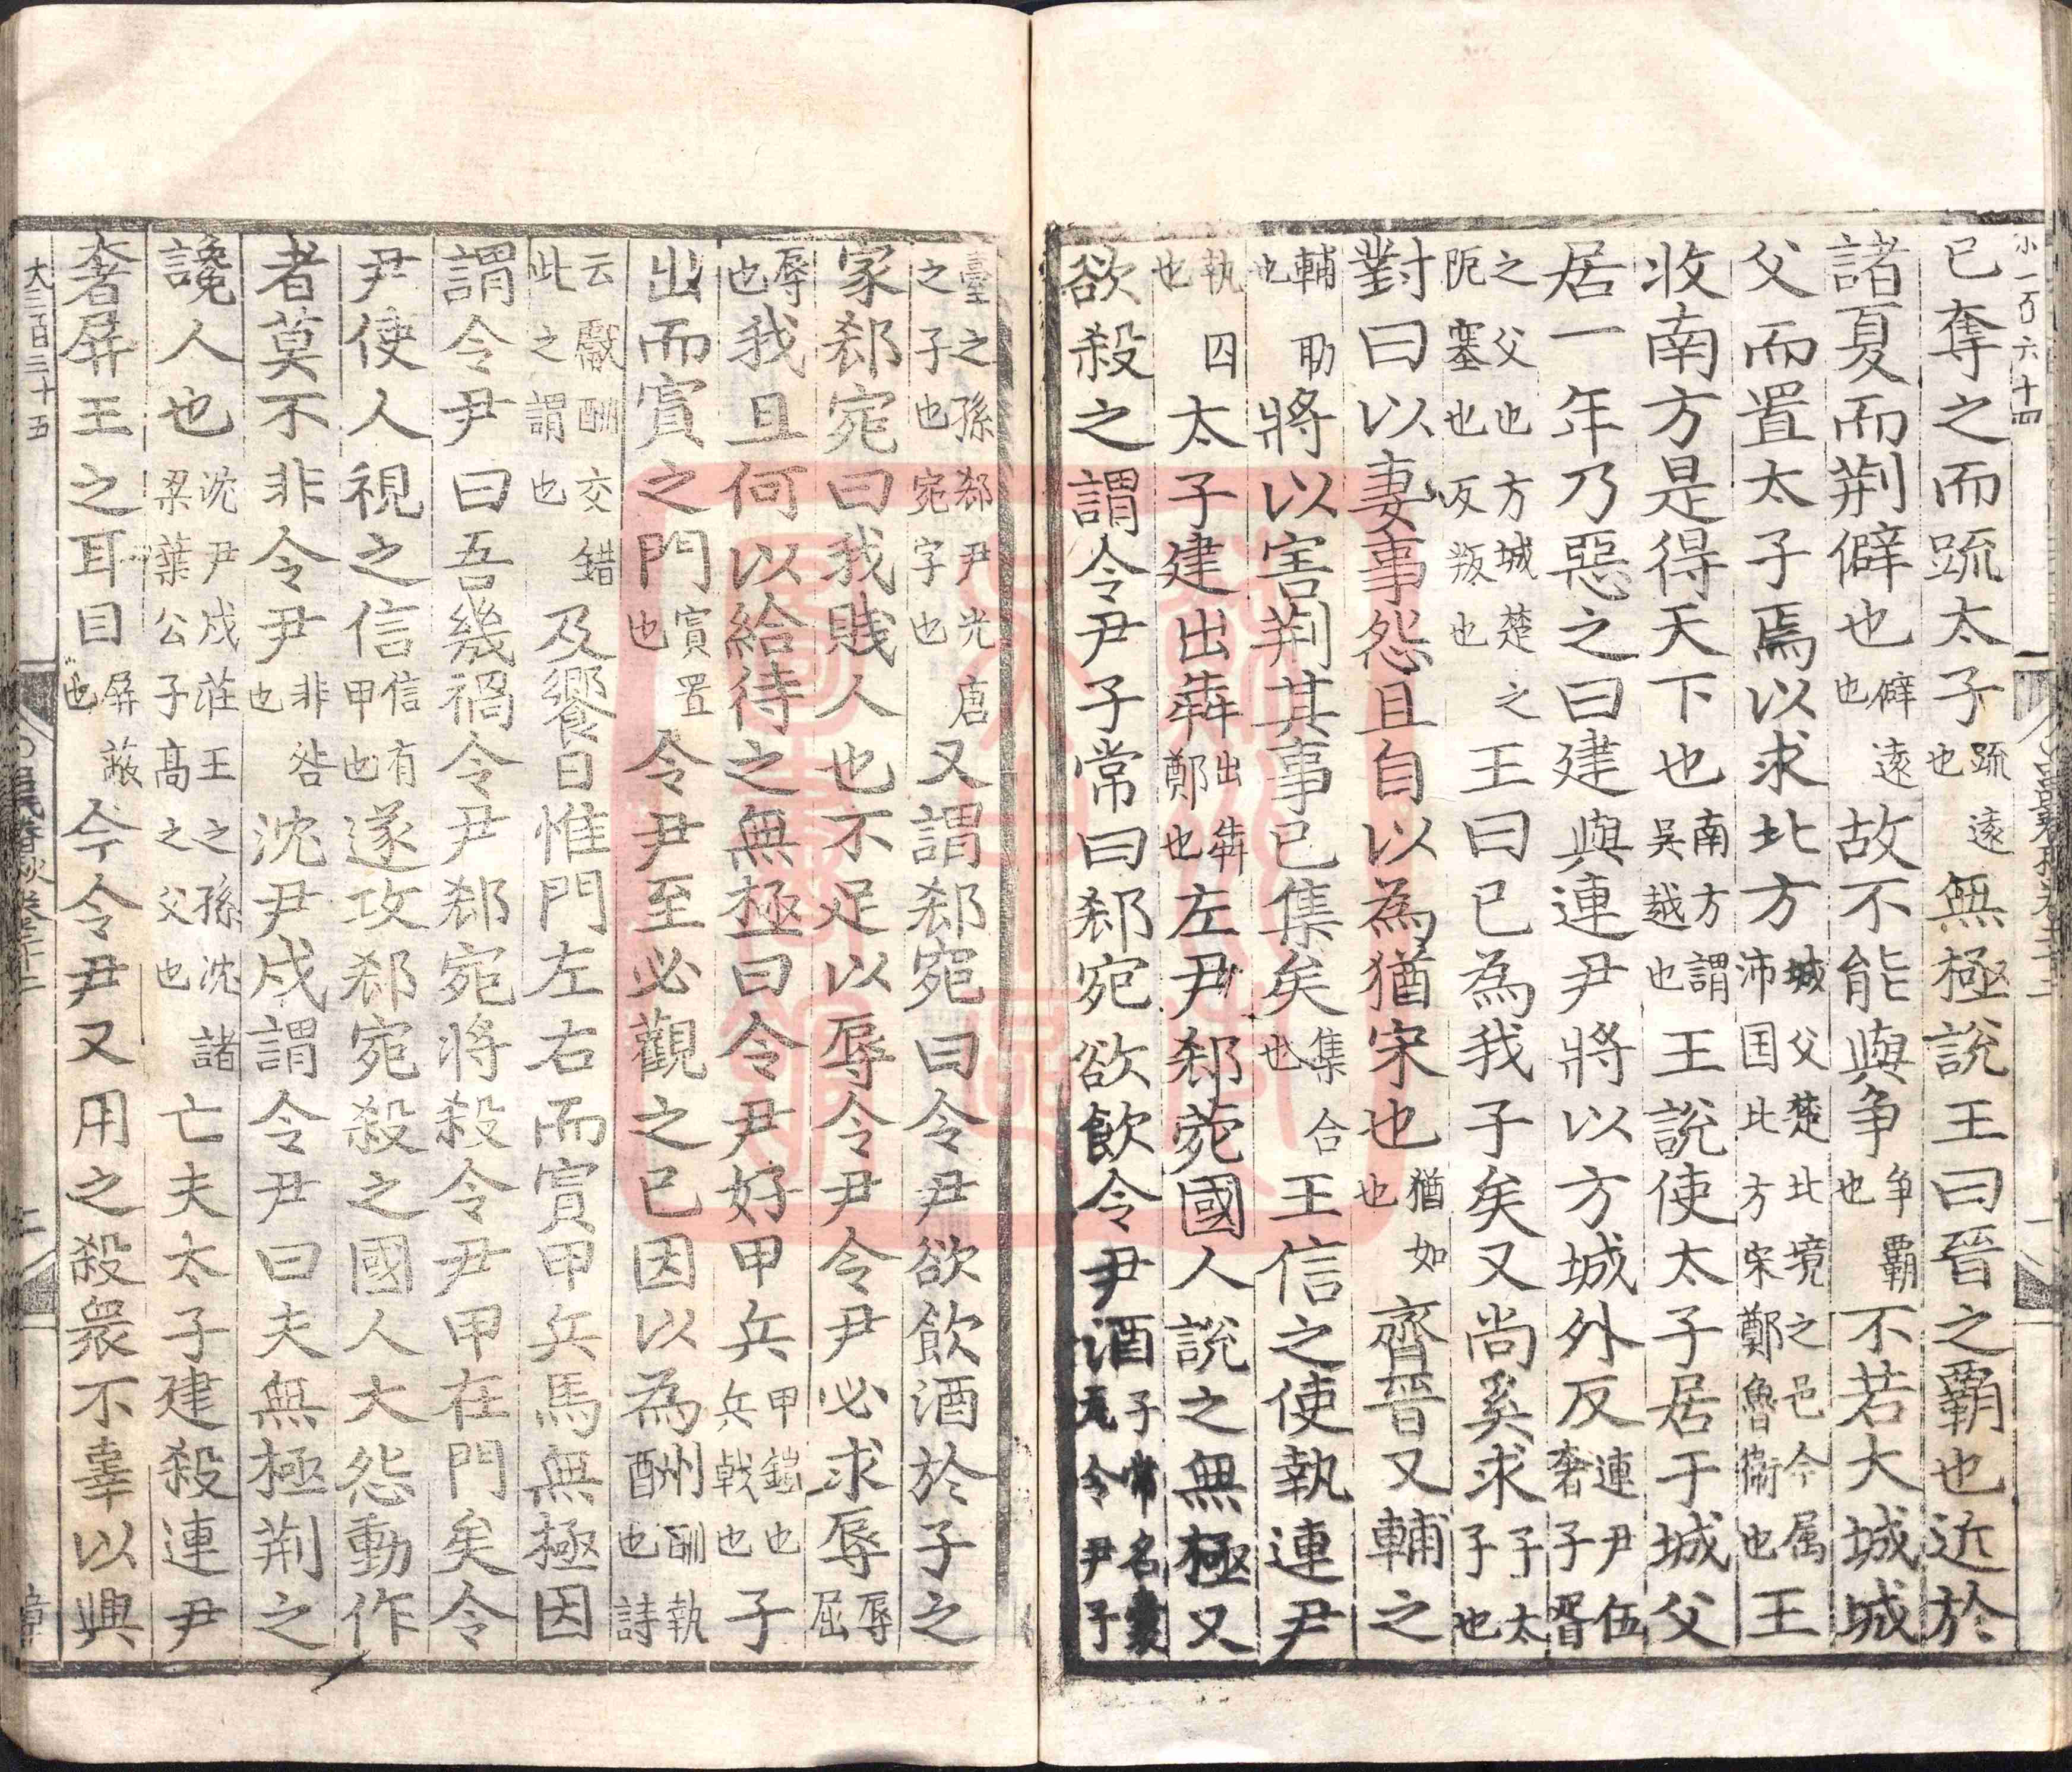 小一百六十四
已奪之而䟽太子䟽逺也無極說王曰晉之覇也近於
諸夏而荆僻也僻逺也故不能與争争覇也不若大城城
父而置太子焉以求北方城父楚北境之邑今属沛国北方宋鄭魯衞也王
收南方是得天下也南方謂吳越也王說使太子居于城父
居一年乃惡之曰建與連尹將以方城外反連尹伍奢子胥
之父也方城楚之阨塞也反叛也王曰已為我子矣又尚奚求子太子也
對曰以妻事怨且自以為猶宋也猶如也齊晉又輔之
輔助也將以害荆其事已集矣集合也王信之使執連尹
執囚也太子建出犇出犇鄭也左尹郄菀國人說之無極又
欲殺之謂令尹子常曰郄宛欲飲令尹酒子常名囊瓦令尹子
臺之孫郄尹光唐之子也宛字也又謂郄宛曰令尹欲飲酒於子之
家郄宛曰我賤人也不足以辱令尹令尹必求辱辱屈
辱也我且何以給待之無極曰令尹好甲兵甲鎧也兵戟也子
出而寘之門寘置也令尹至必觀之已因以為酬酬執酬也詩
云獻酬交錯此之謂也及饗日惟門左右而寘甲兵馬無極因
謂令尹曰吾幾禍令尹郄宛將殺令尹甲在門矣令
尹使人視之信信有甲也遂攻郄宛殺之國人大怨動作
者莫不非令尹非咎也沈尹戍謂令尹曰夫無極荆之
讒人也沈尹戍莊王之孫沈諸梁葉公子高之父也亡夫太子建殺連尹
奢屏王之耳目屏蔽也今令尹又用之殺衆不辜以興
大三百三十五